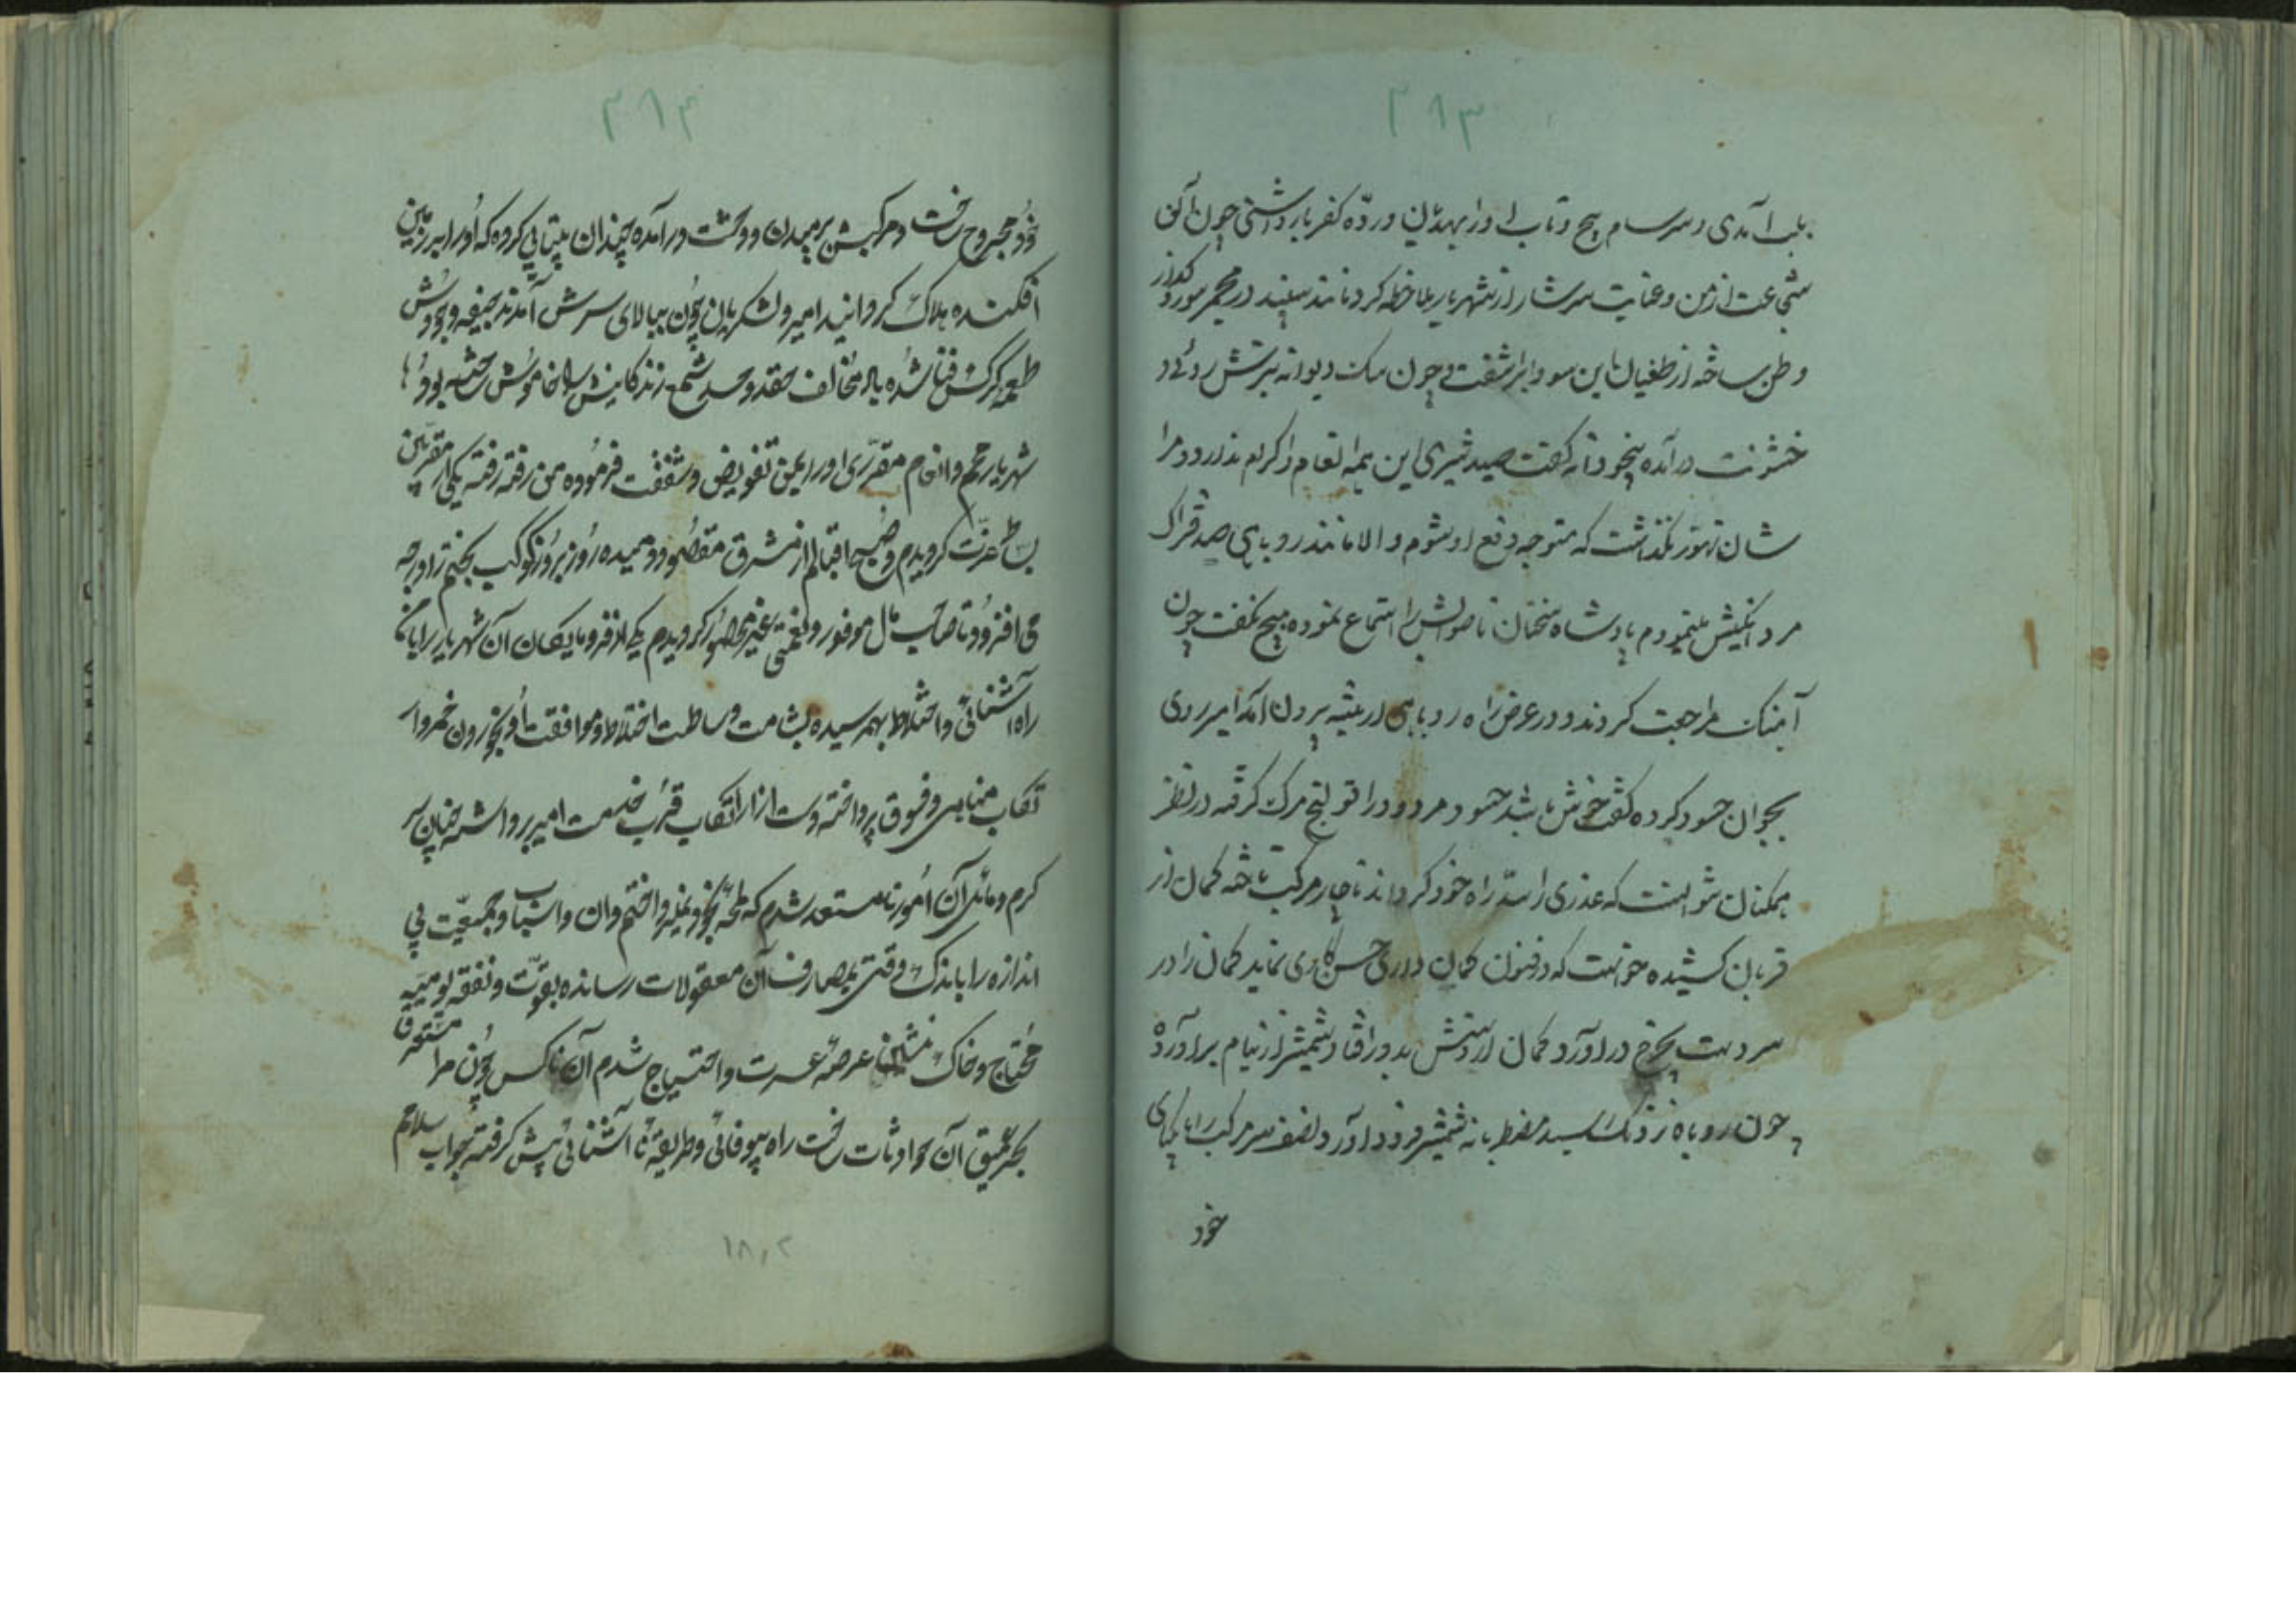 ۳۸۳
بلب آمدی و سرسام پیچ و تاب او را بهذیان و رده کفر بار داشتی چون آن
شجاعت از من و عنایت سرشار از شهریار ملاحظه کرد مانند سپند در مجمر سوز و گداز
وطن ساخته از طغیان این سودا برآشفت و چون سک دیوانه ترش روئی و
خشونت در آمده بیخودانه کفت صید شیری این همه انعام و اکرام ندارد و مرا
شان تهور نکذاشت که متوجه دفع او شوم و الا مانند روباهی صد قراک
مرد افکنیش مینمودم پادشاه سخنان ناصوابش را استماع نموده هیچ نکفت چون
آهنک مراجعت کردند و در عرض راه روباهی از بیشه بیرون آمد امیر روی
بجوان حسود کرده کفت خوش باشد حسود مردود را قولنج مرک کرفته در نظر
همکنان نتوانست که عذری را سد راه خود کرداند ناچار مرکب تاخته کمان از
قربان کشیده خواست که در فنون کمان داری حسن کاری نماید کمان را در
سر دست بچرخ در آورد کمان از دستش بدور افتاد شمشیر از نیام بر آورده
چون روباه نزدیک رسید مضطربانه شمشیر فرود آورد نصف سر مرکب را با پای
خود
۳۸۴
خود مجروح ساخت و مرکبش برمیدن و وحشت در آمده چندان بیتابی کرده که او را بر زمین
افکنده هلاک کردانید امیر و لشکریان چون ببالای سرش آمدند جیفه وجودش
طعمه کرک فنا شده باد مخالف حقد و حسد شمع زندکانیش را خاموش ساخته بود
شهریار عجم و انعام مقرری او را بمن تفویض و شفقت فرموده من رفته رفته یکی از مقربین
بساط عزت کردیدم و صبح اقبالم از مشرق مقصود دمیده روز بروز کوکب بختم را درجه
می افزود تا صاحب مال موفور و نعمتی غیر محصور کردیدم یکی از فرومایکان آن شهریار را با ما
راه آشنائی و اختلاط بهم رسیده بشامت وساطت اختلاط و موافقت او بخوردن خمر و ار
تکاب مناهی و فسوق پرداخته دست از ارتکاب قرب خدمت امیر برداشته چنان سر
کرم و مائل آن امور نامستعد شدم که طرحه بخود نپرداختم و آن اسباب و جمعیت بی
اندازه را باندک وقتی بمصارف آن معقولات رسانده بقوت و نفقه یومیه
محتاج و خاک نشین عرصه عسرت و احتیاج شدم آن ناکس چون مرا مستغرق
بحر عمیق آن حوادثات ساخت راه بیوفائی و طریقه نا آشنائی پیش کرفته جواب سلام
۱۸۰۲